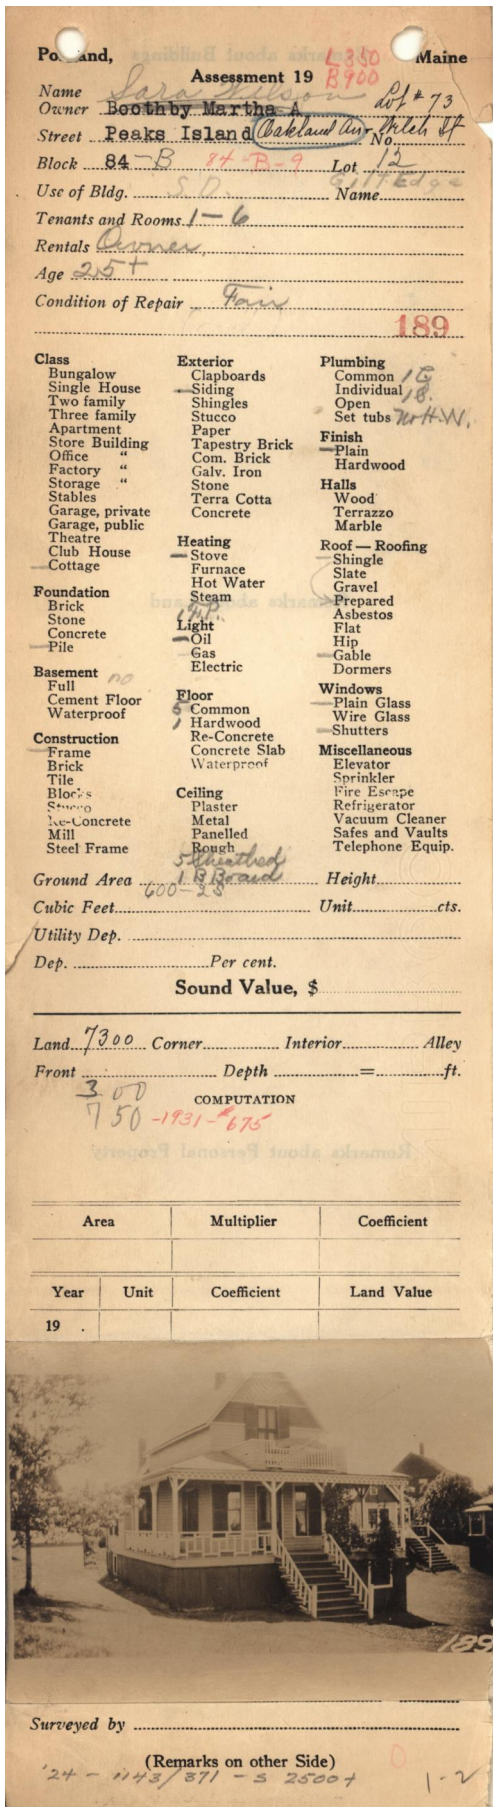 Portland, L350 Maine
Assessment 19 B900
Name Sara Wilson Lot # 73
Owner Boothby Martha A
Street Peaks Island (Oakland Av. No. Welch St
Block 84-B 84-B-9 Lot 12
Use of Bldg. S.D. Name Gilt Edge
Tenants and Rooms 1-6
Rentals Owner
Age 25+
Condition of Repair Fair
189
Class
Bungalow
Single House
Two family
Three family
Apartment
Store Building
Office "
Factory "
Storage "
Stables
Garage, private
Garage, public
Theatre
Club House
Cottage
Foundation
Brick
Stone
Concrete
Pile
Basement no
Full
Cement Floor
Waterproof
Construction
Frame
Brick
Tile
Blocks
Stucco
Re-Concrete
Mill
Steel Frame
Exterior
Clapboards
Siding
Shingles
Stucco
Paper
Tapestry Brick
Com. Brick
Galv. Iron
Stone
Terra Cotta
Concrete
Heating
Stove
Furnace
Hot Water
Steam
1 F.P.
Light
Oil
Gas
Electric
Floor
5 Common
1 Hardwood
Re-Concrete
Concrete Slab
Waterproof
Ceiling
Plaster
Metal
Panelled
Rough
5 Sheathed
1 B Board
Plumbing
Common 1 C
Individual 1 B.
Open
Set tubs No H.W.
Finish
Plain
Hardwood
Halls
Wood
Terrazzo
Marble
Roof — Roofing
Shingle
Slate
Gravel
Prepared
Asbestos
Flat
Hip
Gable
Dormers
Windows
Plain Glass
Wire Glass
Shutters
Miscellaneous
Elevator
Sprinkler
Fire Escape
Refrigerator
Vacuum Cleaner
Safes and Vaults
Telephone Equip.
Ground Area 600-2S Height
Cubic Feet Unit cts.
Utility Dep.
Dep. Per cent.
Sound Value, $
Land 7300 Corner Interior Alley
Front Depth = ft.
300
COMPUTATION
750 -1931-$675
Area Multiplier Coefficient
Year Unit Coefficient Land Value
19 .
189
Surveyed by
(Remarks on other Side)
'24 - 1143/371 - S 2500+ 1-2